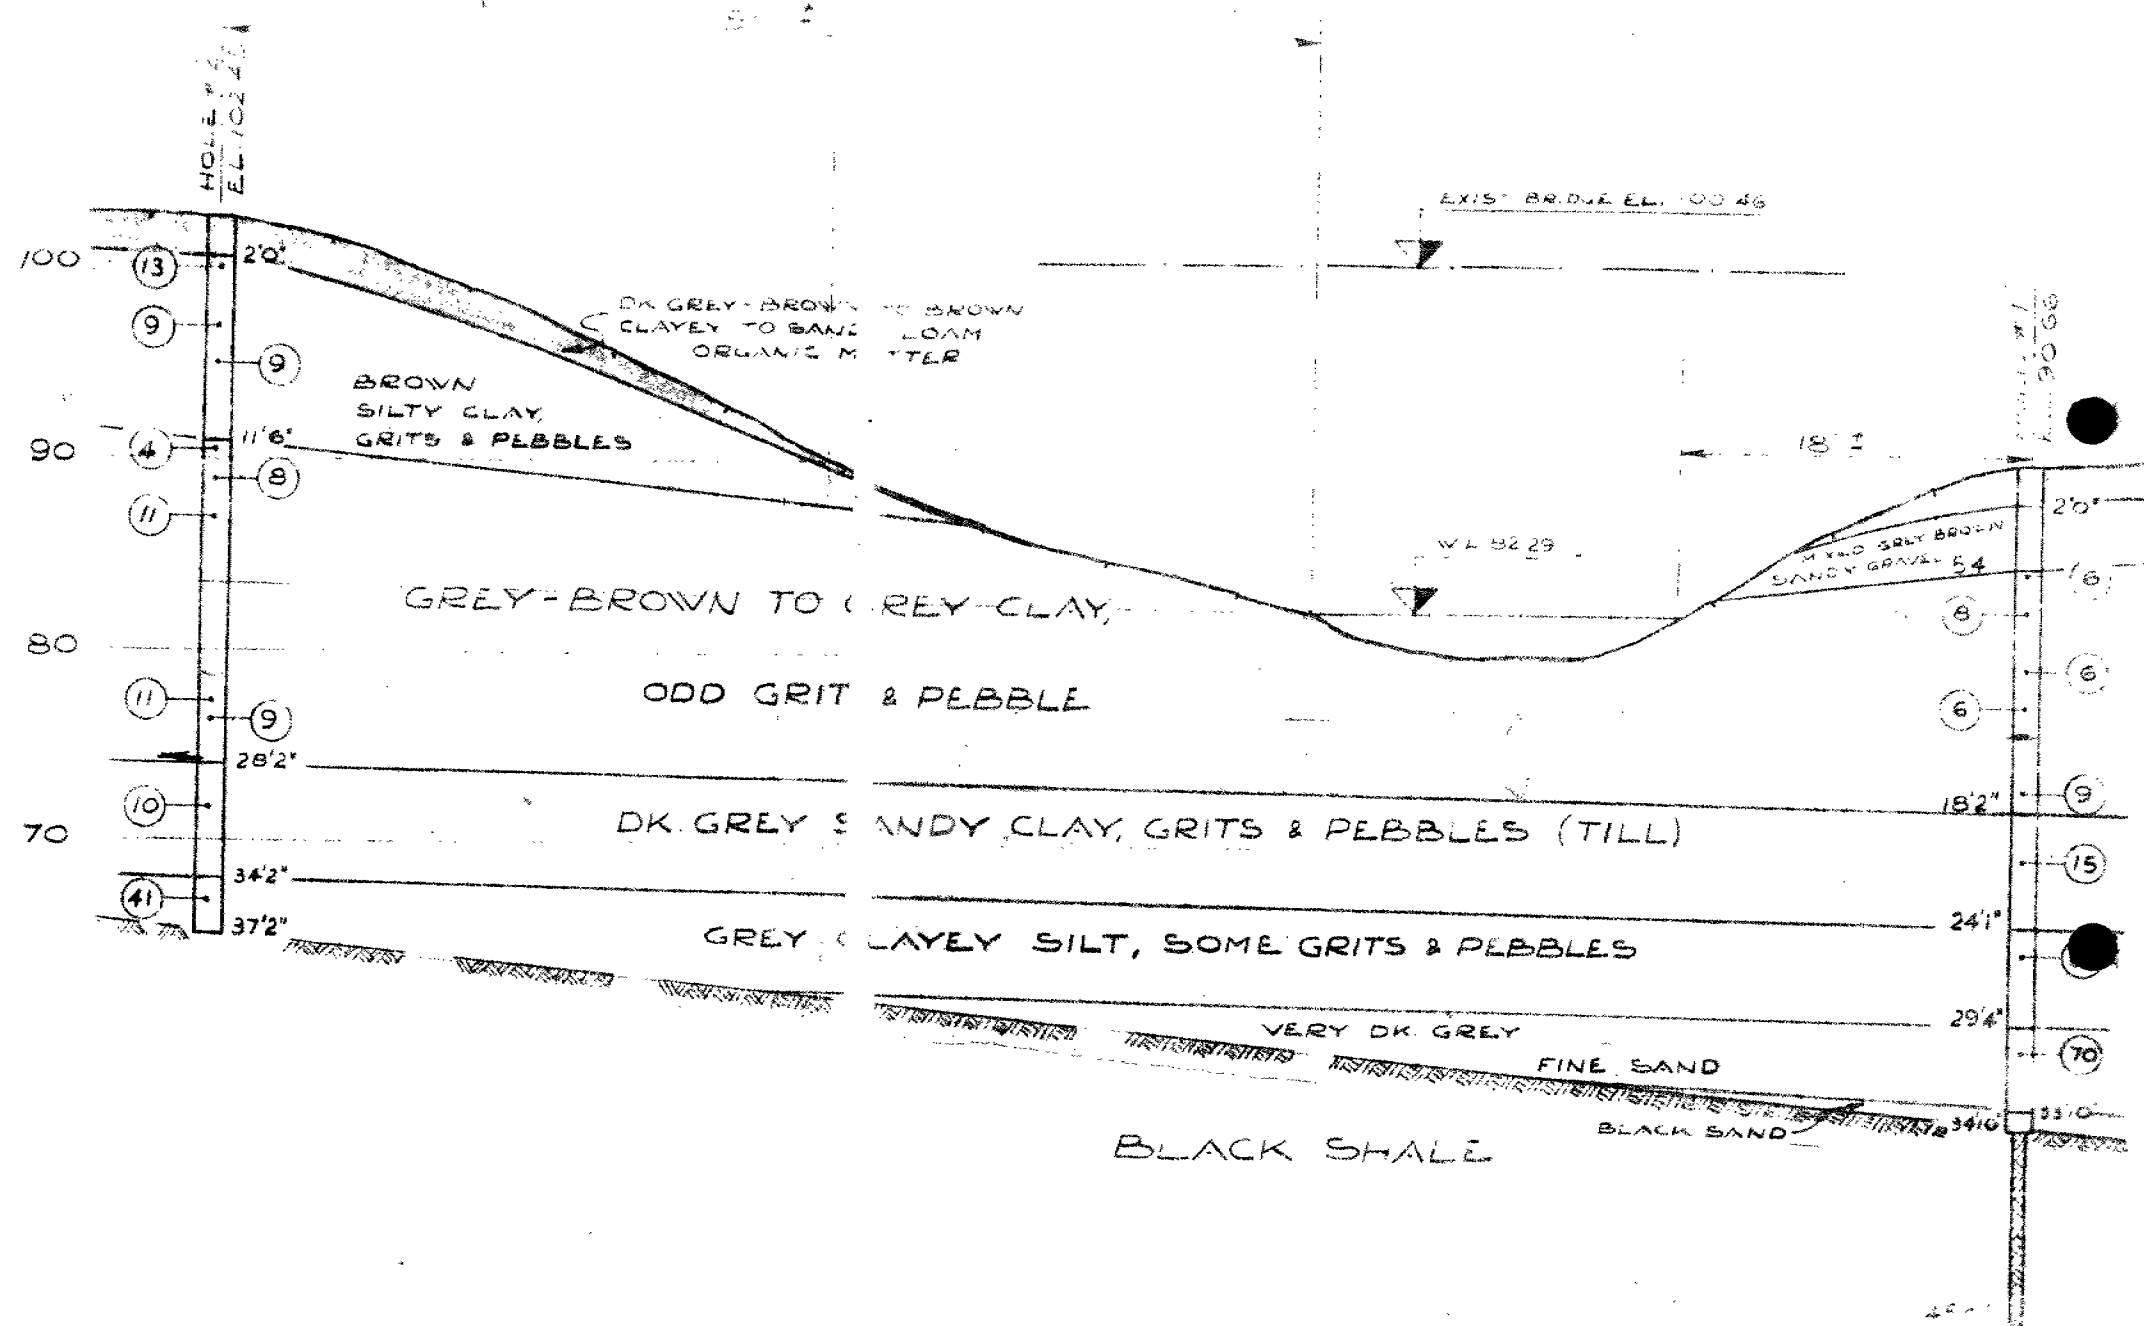 HOLE #
EL. 102
EXIST BRIDGE EL. 100 46
100
13
2'0"
9
9
DK GREY-BROWN TO BROWN
CLAYEY TO SAND LOAM
ORGANIC MATTER
BROWN
SILTY CLAY,
GRITS & PEBBLES
90
4
11'6"
8
11
18' ±
90 68
2'0"
W L 82 29
MIXED GREY BROWN
SANDY GRAVEL
54
6
8
GREY-BROWN TO GREY CLAY,
80
6
ODD GRIT & PEBBLE
11
9
6
28'2"
10
9
18'2"
70
DK. GREY SANDY CLAY, GRITS & PEBBLES (TILL)
15
34'2"
41
37'2"
24'1"
GREY CLAYEY SILT, SOME GRITS & PEBBLES
29'4"
VERY DK. GREY
70
FINE SAND
BLACK SAND
34'0"
33'0"
BLACK SHALE